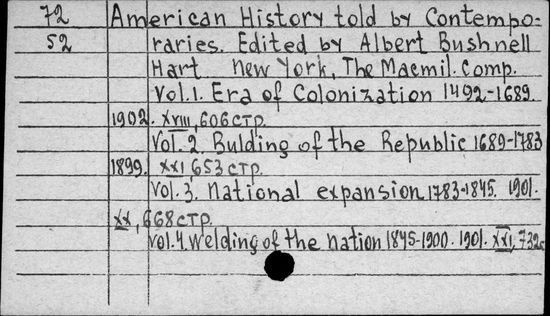 72 American History told by Contempo-
52 raries. Edited by Albert Bushnell
Hart New York, The Macmil. Comp.
Vol.1. Era of Colonization 1492-1689.
1902. XVIII, 606 стр.
Vol. 2. Bulding of the Republic 1689-1783
1899. XXI, 653 стр.
Vol. 3. National expansion 1783-1845. 1901.
XX, 668 стр.
Vol. 4. Welding of the nation 1845-1900. 1901. XXI, 732